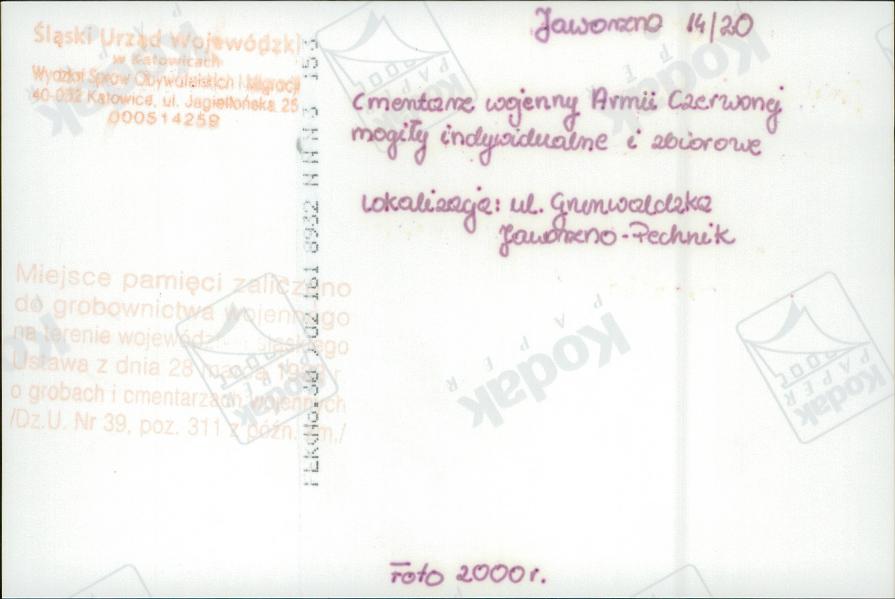 Śląski Urząd Wojewódzki
w Katowicach
Wydział Spraw Obywatelskich i Migracji
40-032 Katowice, ul. Jagiellońska 25
000514259
Jaworzno 14/20
Cmentarz wojenny Armii Czerwonej
mogiły indywidualne i zbiorowe
Lokalizacja: ul. Grunwaldzka
Jaworzno-Pechnik
Miejsce pamięci zaliczono
do grobownictwa wojennego
na terenie województwa śląskiego
Ustawa z dnia 28 marca 1933 r
o grobach i cmentarzach wojennych
/Dz.U. Nr 39, poz. 311 z późn. zm./
Foto 2000 r.
Kodak
PAPER
Kodak
PAPER
Kodak
PAPER